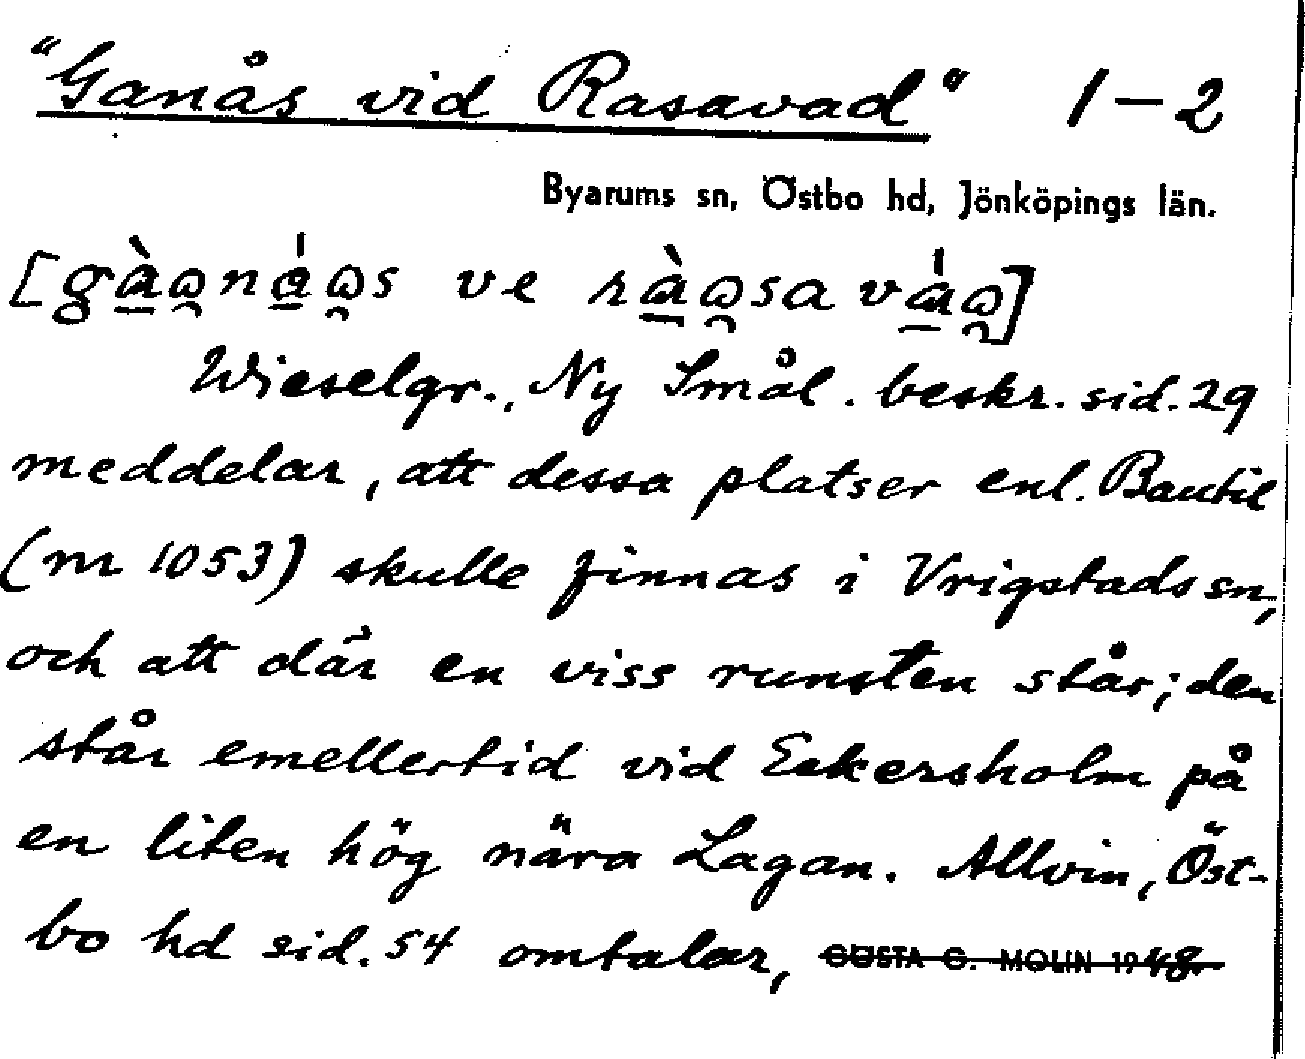 "Ganås vid Rasavad" 1-2
Byarums sn, Östbo hd, Jönköpings län.
Wieselgr., Ny Smål. beskr. sid. 29
meddelar, att dessa platser enl. Bautil
(nr 1053) skulle finnas i Vrigstads sn,
och att där en viss runsten står; den
står emellertid vid Eckersholm på
en liten hög nära Lagan. Allvin, Öst-
bo hd sid. 54 omtalar, GÖSTA C. MOLIN 1948.